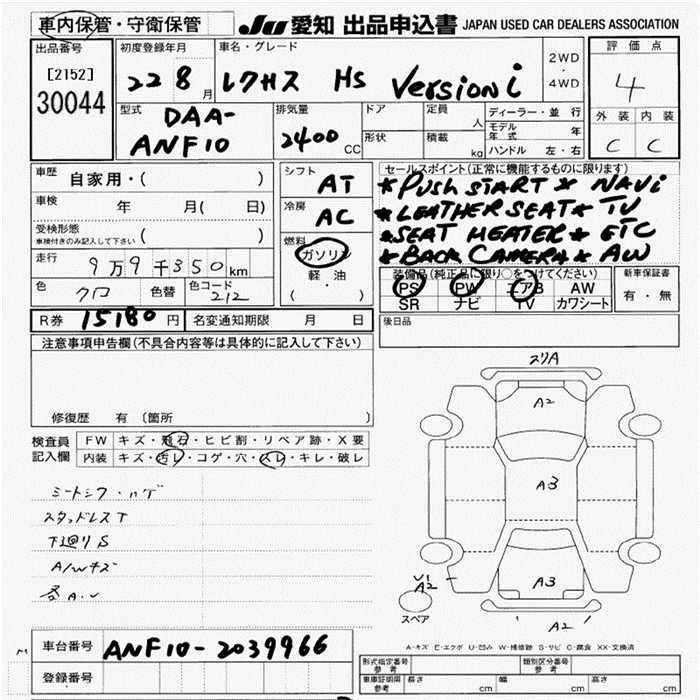 車内保管・守衛保管
JU 愛知 出品申込書 JAPAN USED CAR DEALERS ASSOCIATION
出品番号
[2152]
30044
初度登録年月
22 8 月
車名・グレード
レクサス HS Version i
2WD
・
4WD
評価点
4
外装 内装
C C
型式
DAA-
ANF10
排気量
2400 CC
ドア
形状
定員 人
積載 kg
ディーラー・並行
モデル年式 年
ハンドル 左・右
車歴
自家用・( )
車検 年 月( 日)
受検形態
車検付きのみ記入して下さい ( )
走行 9万9千350km
色 クロ 色替 色コード 212
シフト
AT
冷房
AC
燃料
ガソリン
軽油
( ・ )
セールスポイント(正常に機能するものに限ります)
*PUSH START * NAVi
*LEATHER SEAT* TV
*SEAT HEATER * ETC
*BACK CAMERA * AW
装備品(純正品に限り○をつけてください)
PS PW エアB AW
SR ナビ TV カワシート
新車保証書
有・無
R券 15180 円 名変通知期限 月 日
後日品
注意事項申告欄(不具合内容等は具体的に記入して下さい)
修復歴 有 〔箇所
検査員
記入欄
FW キズ・飛石・ヒビ割・リペア跡・X要
内装 キズ・汚レ・コゲ・穴・スレ・キレ・破レ
スタッドレスT
下廻りS
A/Wキズ
各A.U
スリA
A2
A3
A3
A2
U1
A2
スペア
A-キズ E-エクボ U-凹み W-補修跡 S-サビ C-腐食 XX-交換済
車台番号 ANF10-2039966
登録番号
形式指定番号
参考
類別区分番号
参考
車庫証明用
参考
長さ cm 幅 cm 高さ cm